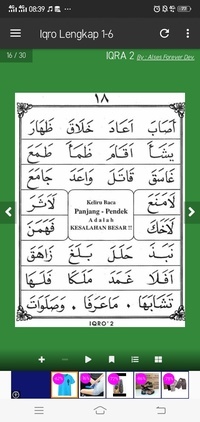 08:39
Iqro Lengkap 1-6
16 / 30
IQRA 2 By : Alsas Forever Dev.
١٨
اَصَابَ اَعَادَ خَلَاقَ ظَهَارَ
يَشَأَ اَقَامَ ظَمَأَ طَمَعَ
غَاسَقَ قَاتَلَ وَاعَدَ جَامَعَ
Keliru Baca
Panjang - Pendek
Adalah
KESALAHAN BESAR !!
نَبَذَ حَلَلَ بَلَغَ زَاهَقَ
اَفَلَا عَمَدَ مَلَكَا فَلَهَا
تَشَابَهَا ۰ مَاعَرَفَا ۰ وَصَلَوَاتَ
IQRO' 2